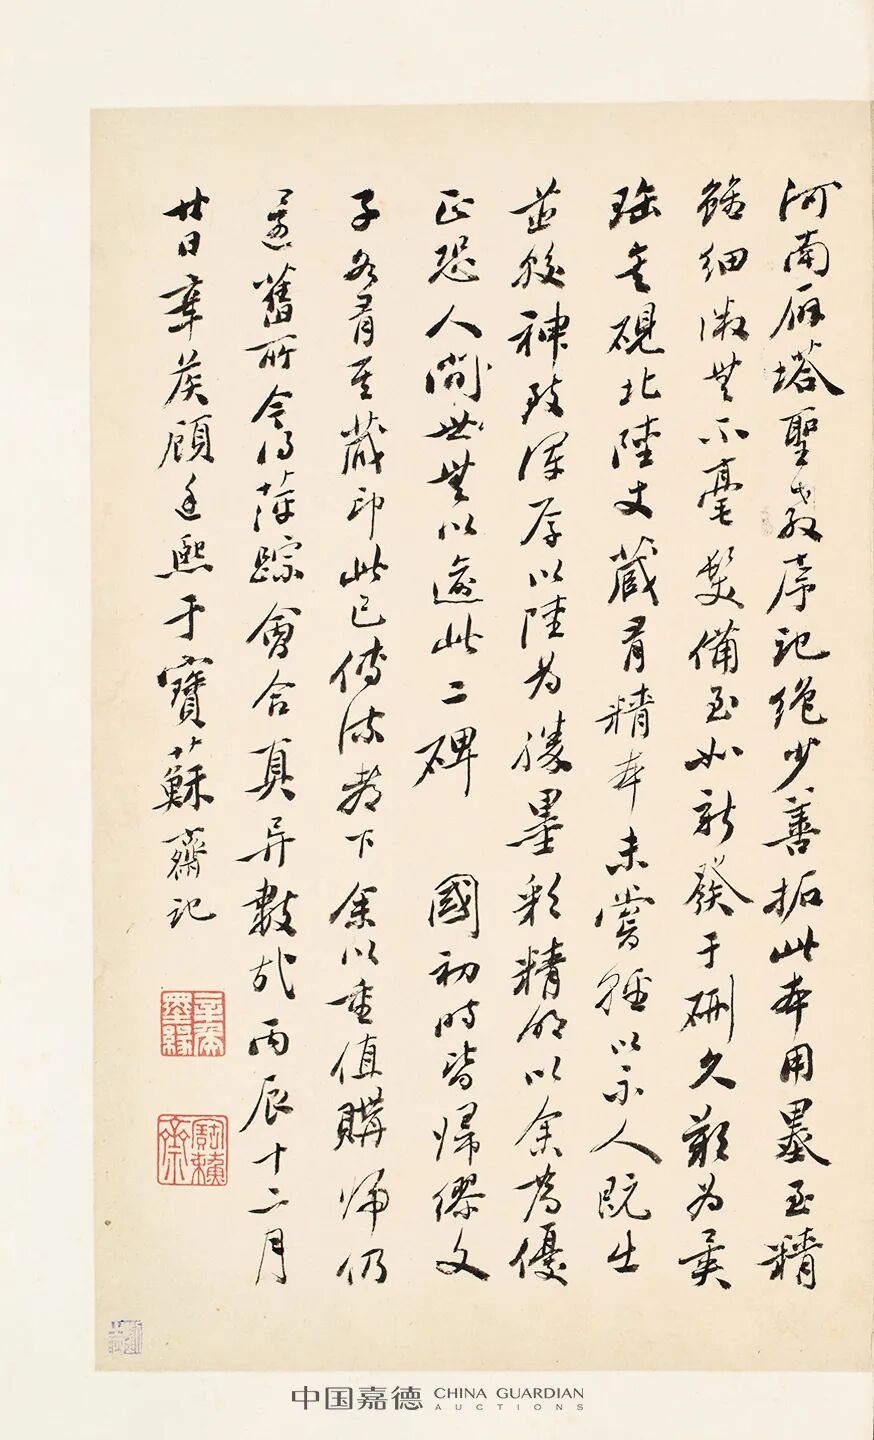 河南雁塔聖教序記絶少善拓此本用墨至精
雖細澂無不毫髮備至如新發于硎久歎為異
珤老硯北陸丈藏有精本未嘗輕以示人既出
並銨神致渾厚以陸為勝墨彩精朗以余為優
正恐人間世無以逾此二碑 國初時皆歸繆文
子各有其藏印此已傳流都下余以重值購歸仍
還舊所今得萍踪會合真异數哉丙辰十二月
廿日韋矦顧廷熙于寶蘇齋記
墨緣
寶蘇齋
中国嘉德 CHINA GUARDIAN
AUCTIONS